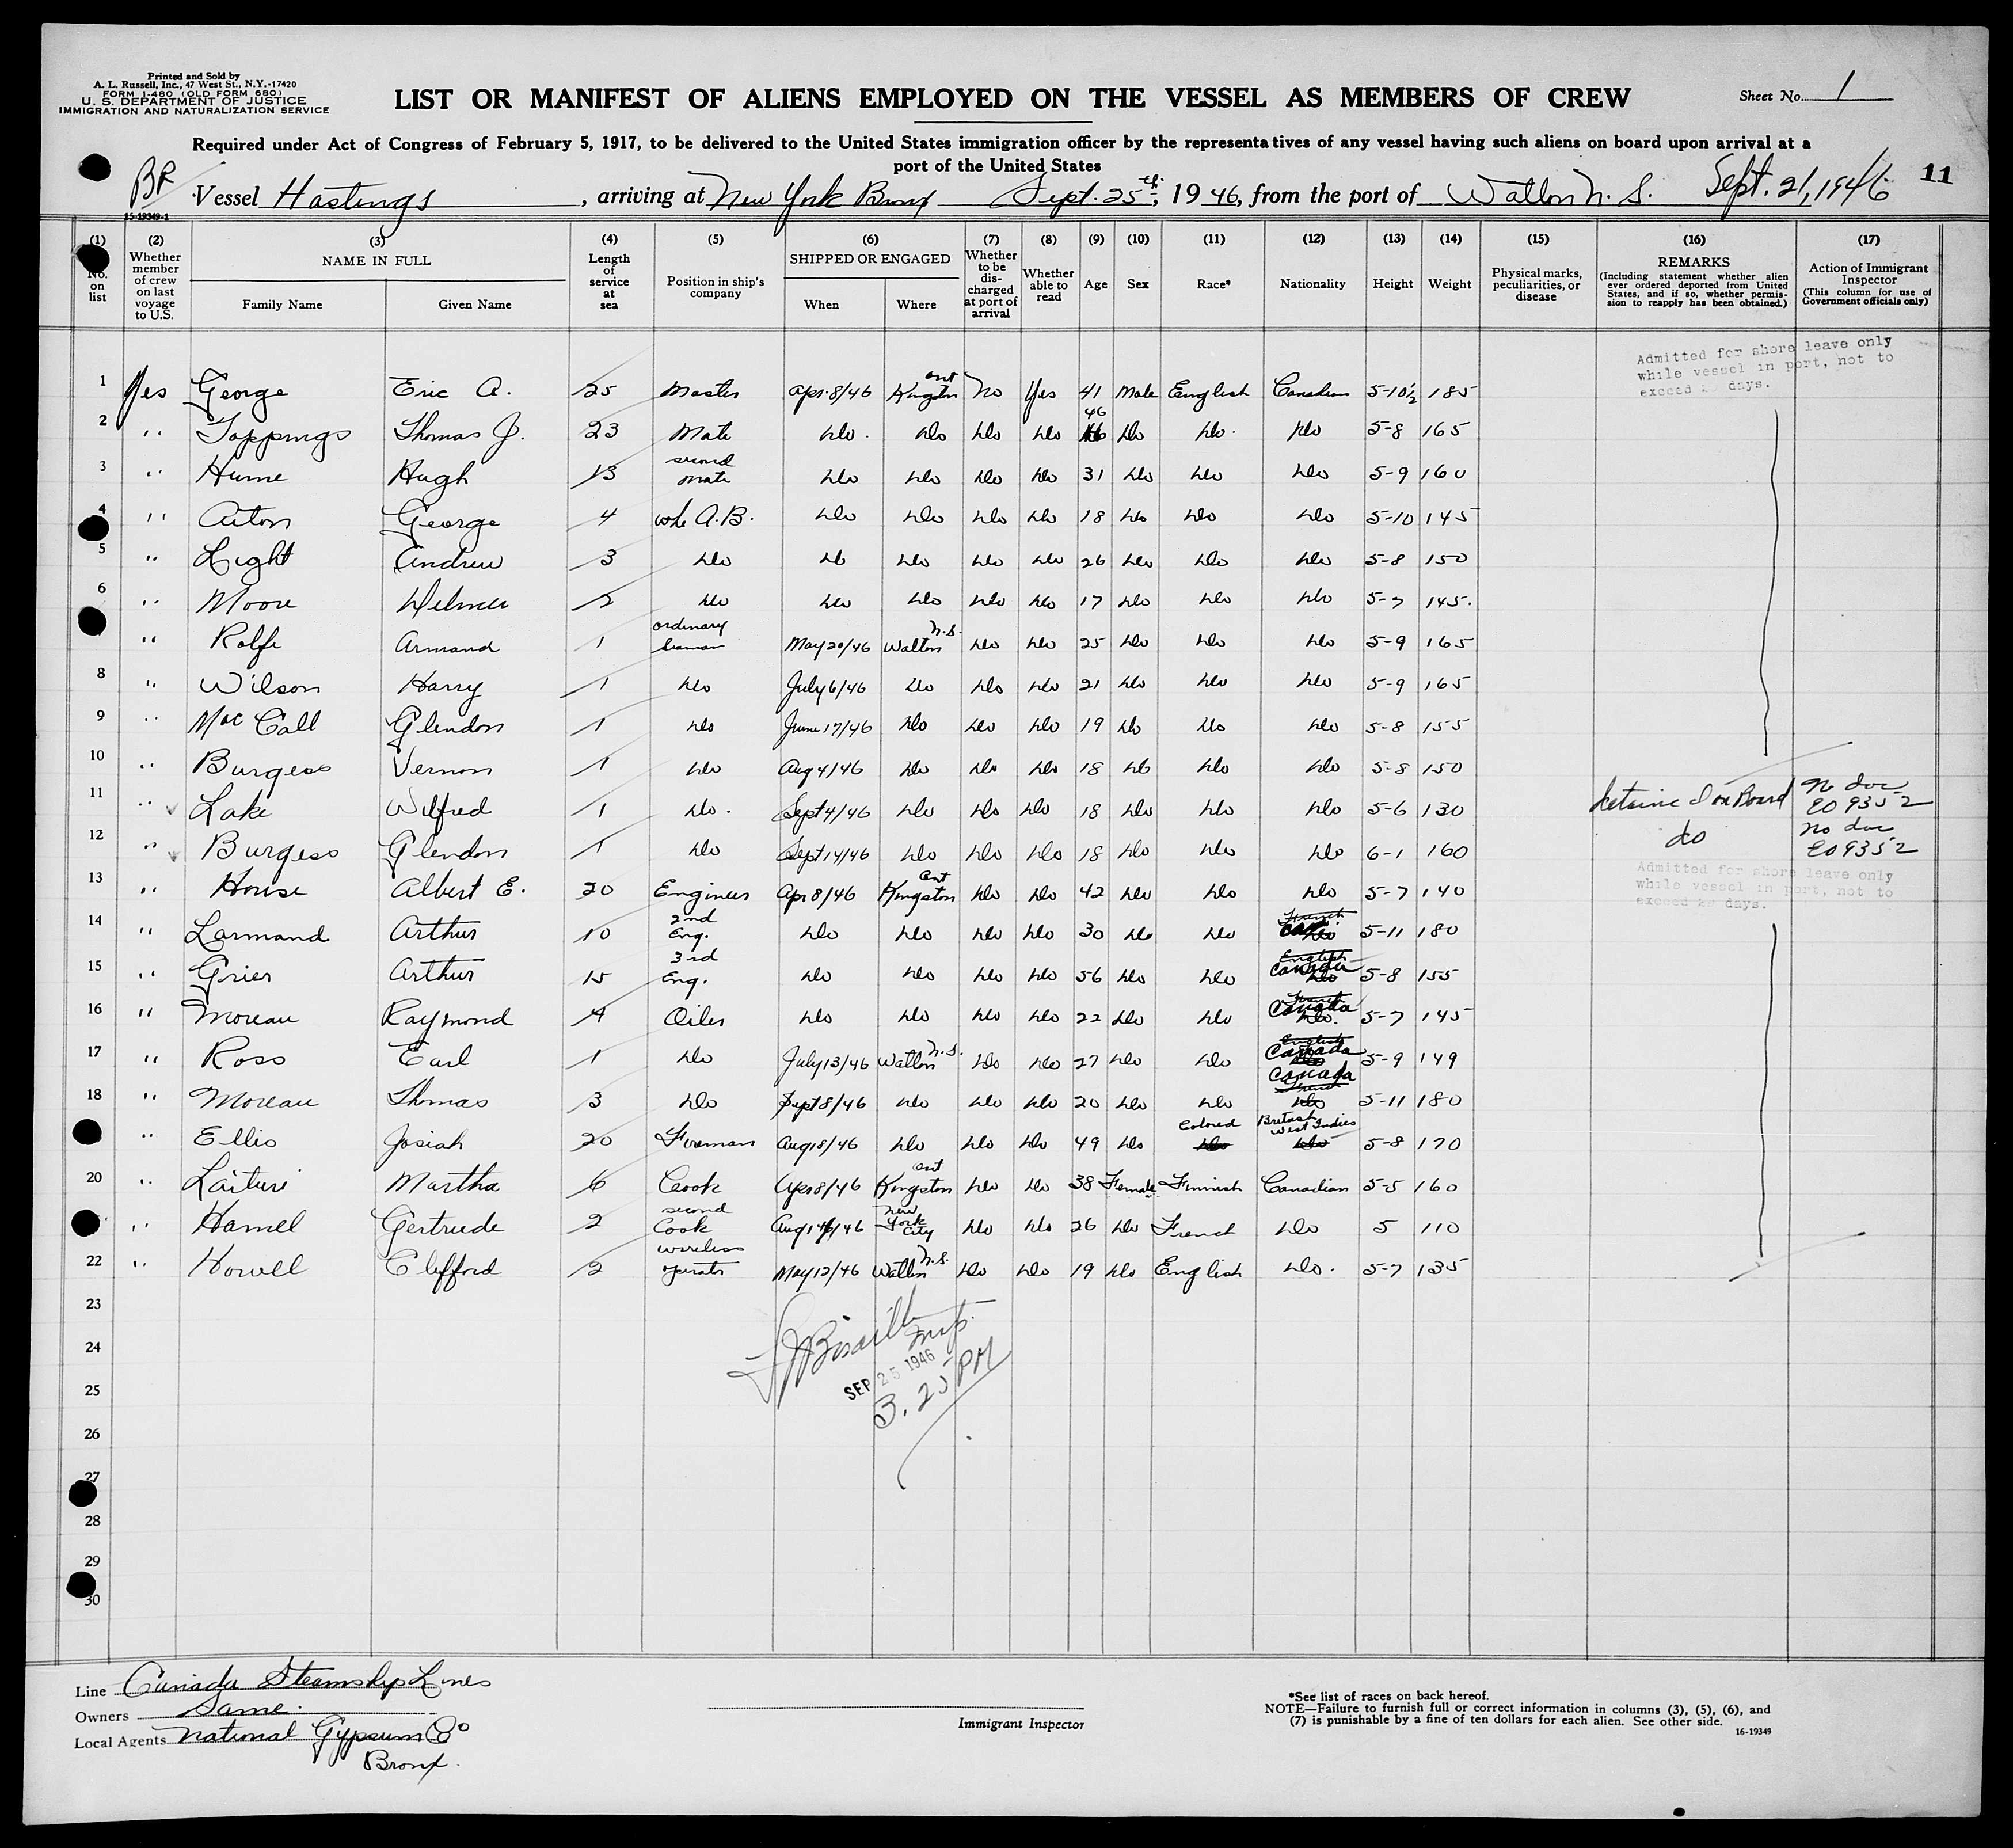 Printed and Sold by
A. L. Russell, Inc., 47 West St., N.Y.-17420
FORM I-480 (OLD FORM 680)
U. S. DEPARTMENT OF JUSTICE
IMMIGRATION AND NATURALIZATION SERVICE
LIST OR MANIFEST OF ALIENS EMPLOYED ON THE VESSEL AS MEMBERS OF CREW
Sheet No. 1
Required under Act of Congress of February 5, 1917, to be delivered to the United States immigration officer by the representatives of any vessel having such aliens on board upon arrival at a
port of the United States
11
BR
Vessel Hastings, arriving at New York Bronx Sept. 25th, 1946, from the port of Walton N. S. Sept. 21, 1946
15-19349-1
(1) No. on list
(2) Whether member of crew on last voyage to U.S.
(3) NAME IN FULL
Family Name Given Name
(4) Length of service at sea
(5) Position in ship's company
(6) SHIPPED OR ENGAGED
When Where
(7) Whether to be discharged at port of arrival
(8) Whether able to read
(9) Age
(10) Sex
(11) Race*
(12) Nationality
(13) Height
(14) Weight
(15) Physical marks, peculiarities, or disease
(16) REMARKS
(Including statement whether alien ever ordered deported from United States, and if so, whether permission to reapply has been obtained.)
(17) Action of Immigrant Inspector
(This column for use of Government officials only)
Admitted for shore leave only
while vessel in port, not to
exceed 29 days.
1 Yes George Eric A. 25 Master Apr. 8/46 Kingston Ont No Yes 41 Male English Canadian 5-10½ 185
2 " Toppings Thomas J. 23 Mate do. do do do 46 do do. do 5-8 165
3 " Hume Hugh 13 second mate do do do do 31 do do do 5-9 160
4 " Aiton George 4 A.B. do do do do 18 do do do 5-10 145
5 " Light Andrew 3 do do do do do 26 do do do 5-8 150
6 " Moore Delmer 2 do do do do do 17 do do do 5-7 145.
" Rolfe Armand 1 ordinary seaman May 20/46 Walton N.S. do do 25 do do do 5-9 165
8 " Wilson Harry 1 do July 6/46 do do do 21 do do do 5-9 165
9 " MacCall Glendon 1 do June 17/46 do do do 19 do do do 5-8 155
10 " Burgess Vernon 1 do Aug 4/46 do do do 18 do do do 5-8 150
11 " Lake Wilfred 1 do. Sept 4/46 do do do 18 do do do 5-6 130 detained on Board No doc EO 9352
12 " Burgess Glendon 1 do Sept 14/46 do do do 18 do do do 6-1 160 do No doc EO 9352
Admitted for shore leave only
while vessel in port, not to
exceed 29 days.
13 " House Albert E. 20 Engineer Apr 8/46 Kingston Ont do do 42 do do do 5-7 140
14 " Larmand Arthur 10 2nd Eng. do do do do 30 do do French Can. do 5-11 180
15 " Grier Arthur 15 3rd Eng. do do do do 56 do do English Canada do 5-8 155
16 " Moreau Raymond 4 Oiler do do do do 22 do do French Canada do. 5-7 145
17 " Ross Earl 1 do July 13/46 Walton N.S. do do 27 do do English Canada do 5-9 149
18 " Moreau Thomas 3 do Sept 8/46 do do do 20 do do Canada French do 5-11 180
" Ellis Josiah 20 Fireman Aug 18/46 do do do 49 do Colored do British West Indies do 5-8 170
20 " Laituri Martha 6 Cook Apr 8/46 Kingston Ont do do 38 Female Finnish Canadian 5-5 160
" Hamel Gertrude 2 second Cook Aug 14/46 New York City do do 26 do French do 5 110
22 " Howell Clifford 2 wireless operator May 12/46 Walton N.S. do do 19 do English do. 5-7 135
23
24
25
26
27
28
29
30
Insp.
SEP 25 1946
3.25 PM
Line Canada Steamship Lines
Owners Same.
Local Agents National Gypsum Co
Bronx.
Immigrant Inspector
*See list of races on back hereof.
NOTE—Failure to furnish full or correct information in columns (3), (5), (6), and
(7) is punishable by a fine of ten dollars for each alien. See other side.
16-19349